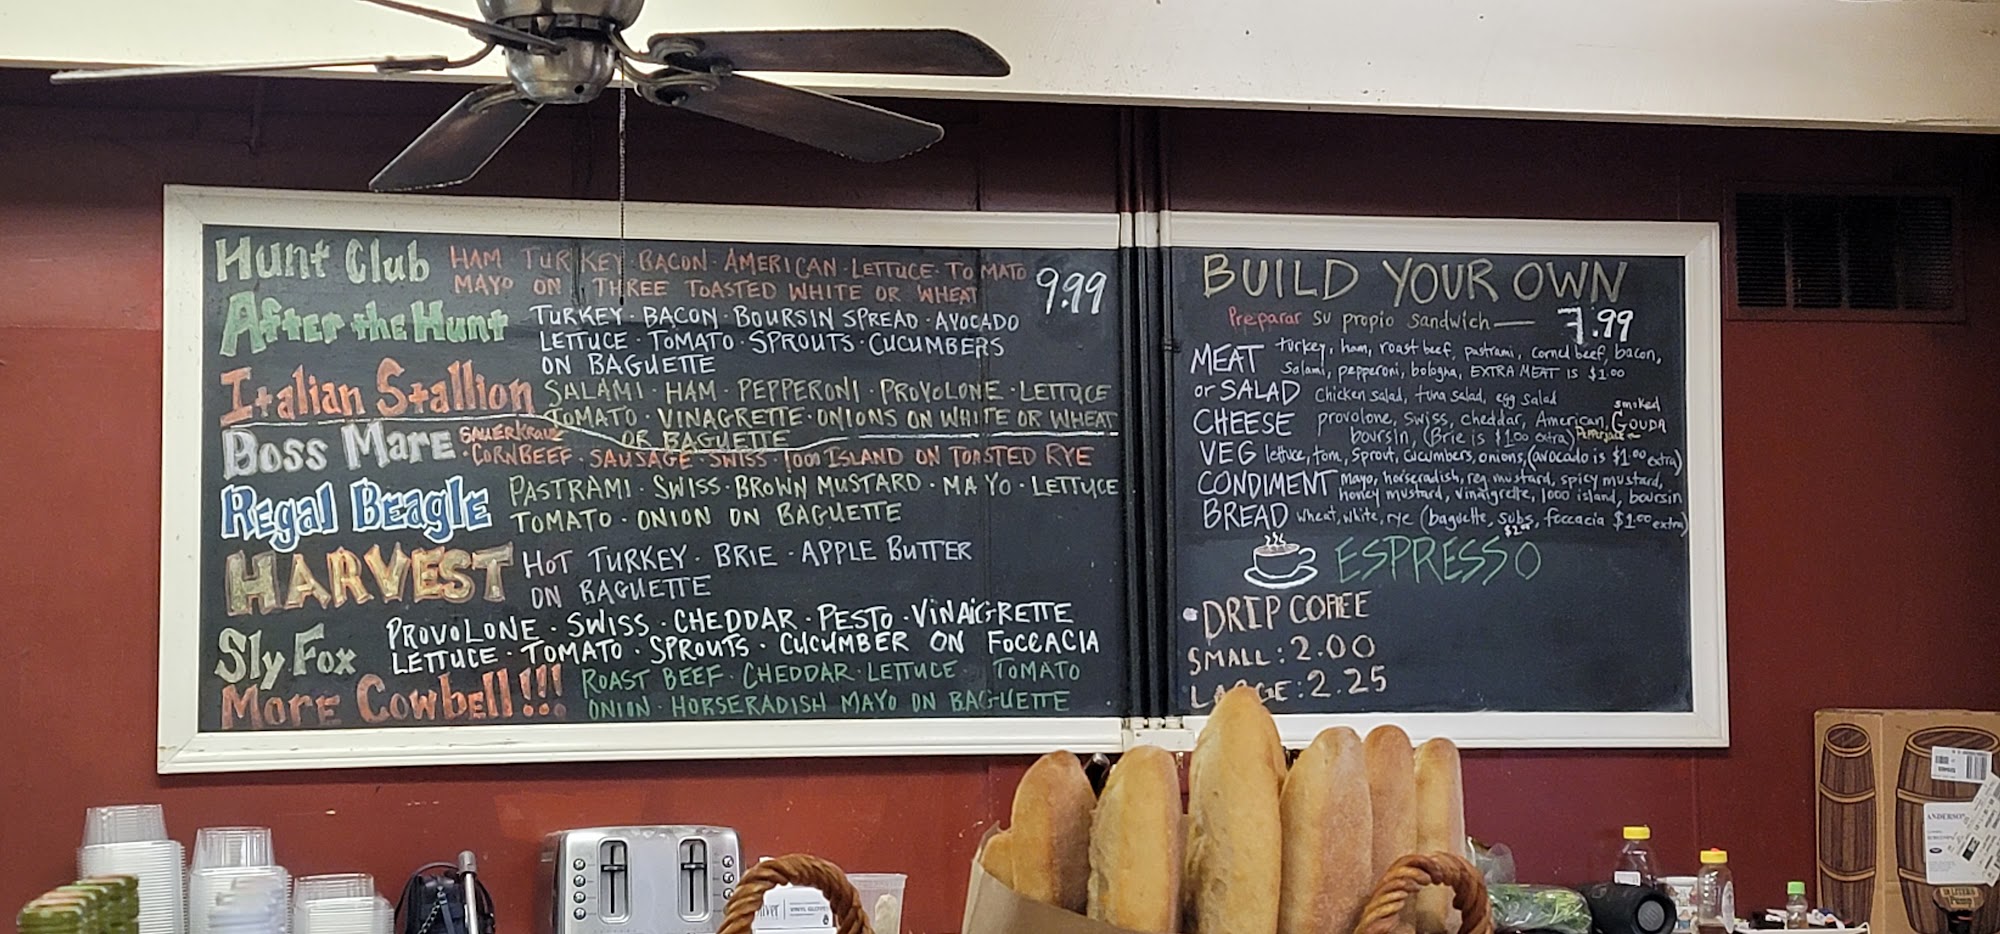 Hunt Club HAM TURKEY BACON · AMERICAN · LETTUCE · TOMATO
MAYO ON THREE TOASTED WHITE OR WHEAT
9.99
After the Hunt TURKEY · BACON · BOURSIN SPREAD · AVOCADO
LETTUCE · TOMATO · SPROUTS · CUCUMBERS
ON BAGUETTE
Italian Stallion SALAMI · HAM · PEPPERONI · PROVOLONE · LETTUCE
TOMATO · VINAGRETTE · ONIONS ON WHITE OR WHEAT
OR BAGUETTE
Boss Mare SAUERKRAUT
· CORNBEEF · SAUSAGE · SWISS · 1000 ISLAND ON TOASTED RYE
Regal Beagle PASTRAMI · SWISS · BROWN MUSTARD · MAYO · LETTUCE
TOMATO · ONION ON BAGUETTE
HARVEST HOT TURKEY · BRIE · APPLE BUTTER
ON BAGUETTE
Sly Fox PROVOLONE · SWISS · CHEDDAR · PESTO · VINAIGRETTE
LETTUCE · TOMATO · SPROUTS · CUCUMBER ON FOCCACIA
More Cowbell!!! ROAST BEEF · CHEDDAR · LETTUCE · TOMATO
ONION · HORSERADISH MAYO ON BAGUETTE
BUILD YOUR OWN
Preparar su propio sandwich — 7.99
MEAT turkey, ham, roast beef, pastrami, corned beef, bacon,
salami, pepperoni, bologna, EXTRA MEAT IS $1.00
or SALAD chicken salad, tuna salad, egg salad
smoked
CHEESE provolone, swiss, cheddar, American, GOUDA
boursin, (Brie is $1.00 extra) Pepperjack
VEG lettuce, tom, sprout, cucumbers, onions, (avocado is $1.00 extra)
CONDIMENT mayo, horseradish, reg mustard, spicy mustard,
honey mustard, vinaigrette, 1000 island, boursin
BREAD wheat, white, rye (baguette, subs, foccacia $1.00 extra)
$2.00
ESPRESSO
· DRIP COFFEE
SMALL: 2.00
LARGE: 2.25
ANDERSON